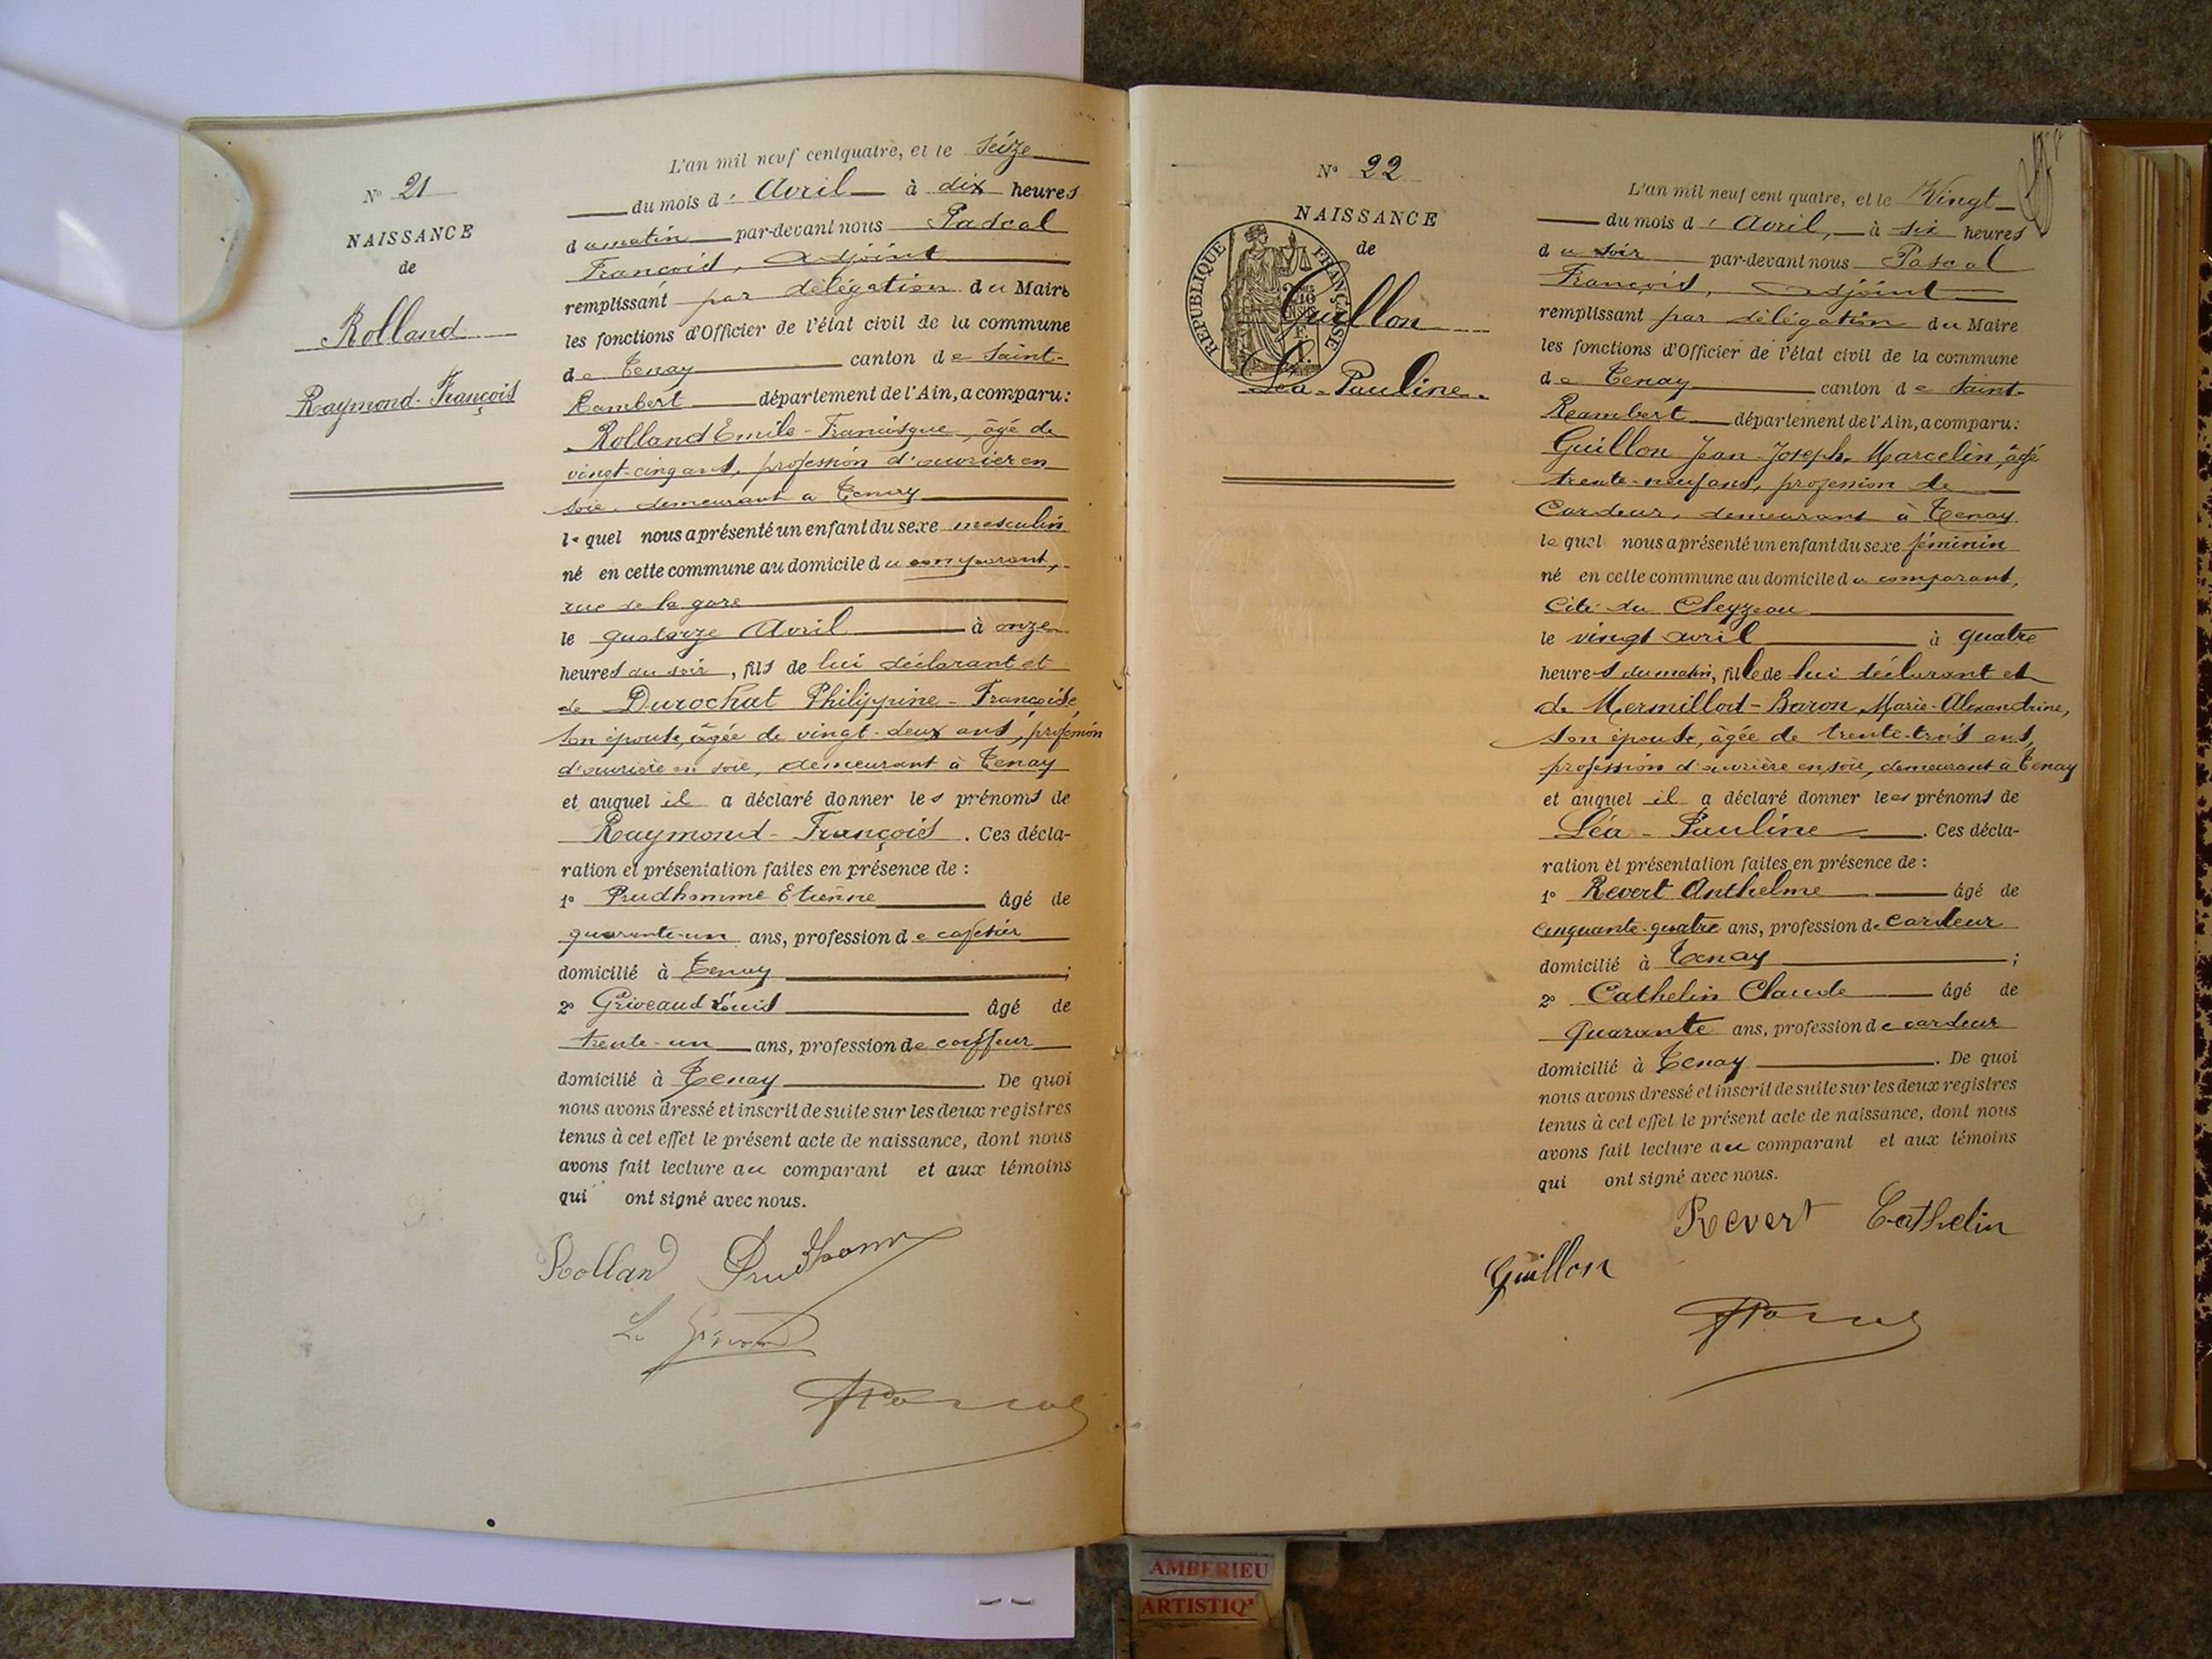 N° 21
NAISSANCE
de
Rolland
Raymond-François
L'an mil neuf cent quatre, et le Seize
du mois d' Avril à dix heures
du matin par-devant nous Pascal
François, adjoint
remplissant par délégation du Maire
les fonctions d'Officier de l'état civil de la commune
de Tenay canton de Saint-
Rambert département de l'Ain, a comparu:
Rolland Emile-Francisque, âgé de
vingt-cinq ans, profession d'ouvrier en
soie, demeurant à Tenay
lequel nous a présenté un enfant du sexe masculin
né en cette commune au domicile du comparant,
rue de la gare
le quatorze Avril à onze
heures du soir, fils de lui déclarant et
de Durochat Philippine-Françoise,
son épouse, âgée de vingt-deux ans, profession
d'ouvrière en soie, demeurant à Tenay
et auquel il a déclaré donner les prénoms de
Raymond-François. Ces décla-
ration et présentation faites en présence de :
1° Prudhomme Etienne âgé de
quarante-un ans, profession de cafetier
domicilié à Tenay ;
2° Griveaud Louis âgé de
trente-un ans, profession de coiffeur
domicilié à Tenay . De quoi
nous avons dressé et inscrit de suite sur les deux registres
tenus à cet effet le présent acte de naissance, dont nous
avons fait lecture au comparant et aux témoins
qui ont signé avec nous.
Rolland Prudhomme
N° 22
NAISSANCE
de
REPUBLIQUE FRANÇAISE
Guillon
Léa-Pauline
L'an mil neuf cent quatre, et le Vingt
du mois d' Avril, à six heures
du soir par-devant nous Pascal
François, adjoint
remplissant par délégation du Maire
les fonctions d'Officier de l'état civil de la commune
de Tenay canton de Saint-
Rambert département de l'Ain, a comparu:
Guillon Jean-Joseph-Marcelin, âgé
trente-neuf ans, profession de
Cardeur, demeurant à Tenay
lequel nous a présenté un enfant du sexe féminin
né en cette commune au domicile du comparant,
Cité du Cleyzeau
le vingt avril à quatre
heures du matin, fille de lui déclarant et
de Mermillod-Baron, Marie-Alexandrine,
son épouse, âgée de trente-trois ans,
profession d'ouvrière en soie, demeurant à Tenay
et auquel il a déclaré donner les prénoms de
Léa-Pauline . Ces décla-
ration et présentation faites en présence de :
1° Revert Anthelme âgé de
cinquante-quatre ans, profession de cardeur
domicilié à Tenay ;
2° Cathelin Claude âgé de
quarante ans, profession de cardeur
domicilié à Tenay . De quoi
nous avons dressé et inscrit de suite sur les deux registres
tenus à cet effet le présent acte de naissance, dont nous
avons fait lecture au comparant et aux témoins
qui ont signé avec nous.
Revert Cathelin
Guillon
AMBERIEU
ARTISTIQ